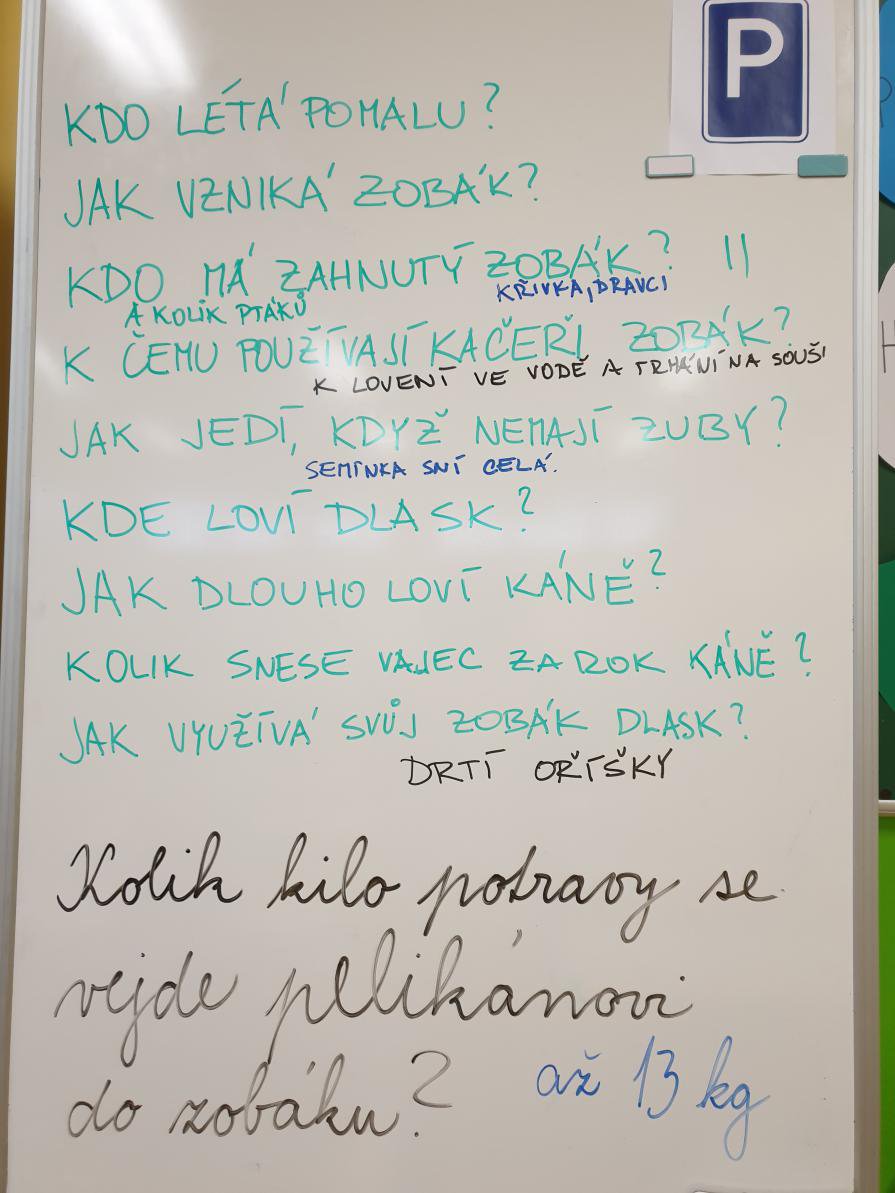 P
KDO LÉTÁ POMALU?
JAK VZNIKÁ ZOBÁK?
KDO MÁ ZAHNUTÝ ZOBÁK? ||
KŘIVKA, DRAVCI
A KOLIK PTÁKŮ
K ČEMU POUŽÍVAJÍ KAČEŘI ZOBÁK?
K LOVENÍ VE VODĚ A TRHÁNÍ NA SOUŠI
JAK JEDÍ, KDYŽ NEMAJÍ ZUBY?
SEMÍNKA SNÍ CELÁ.
KDE LOVÍ DLASK?
JAK DLOUHO LOVÍ KÁNĚ?
KOLIK SNESE VAJEC ZA ROK KÁNĚ?
JAK VYUŽÍVÁ SVŮJ ZOBÁK DLASK?
DRTÍ OŘÍŠKY
Kolik kilo potravy se
vejde pelikánovi
do zobáku? až 13 kg